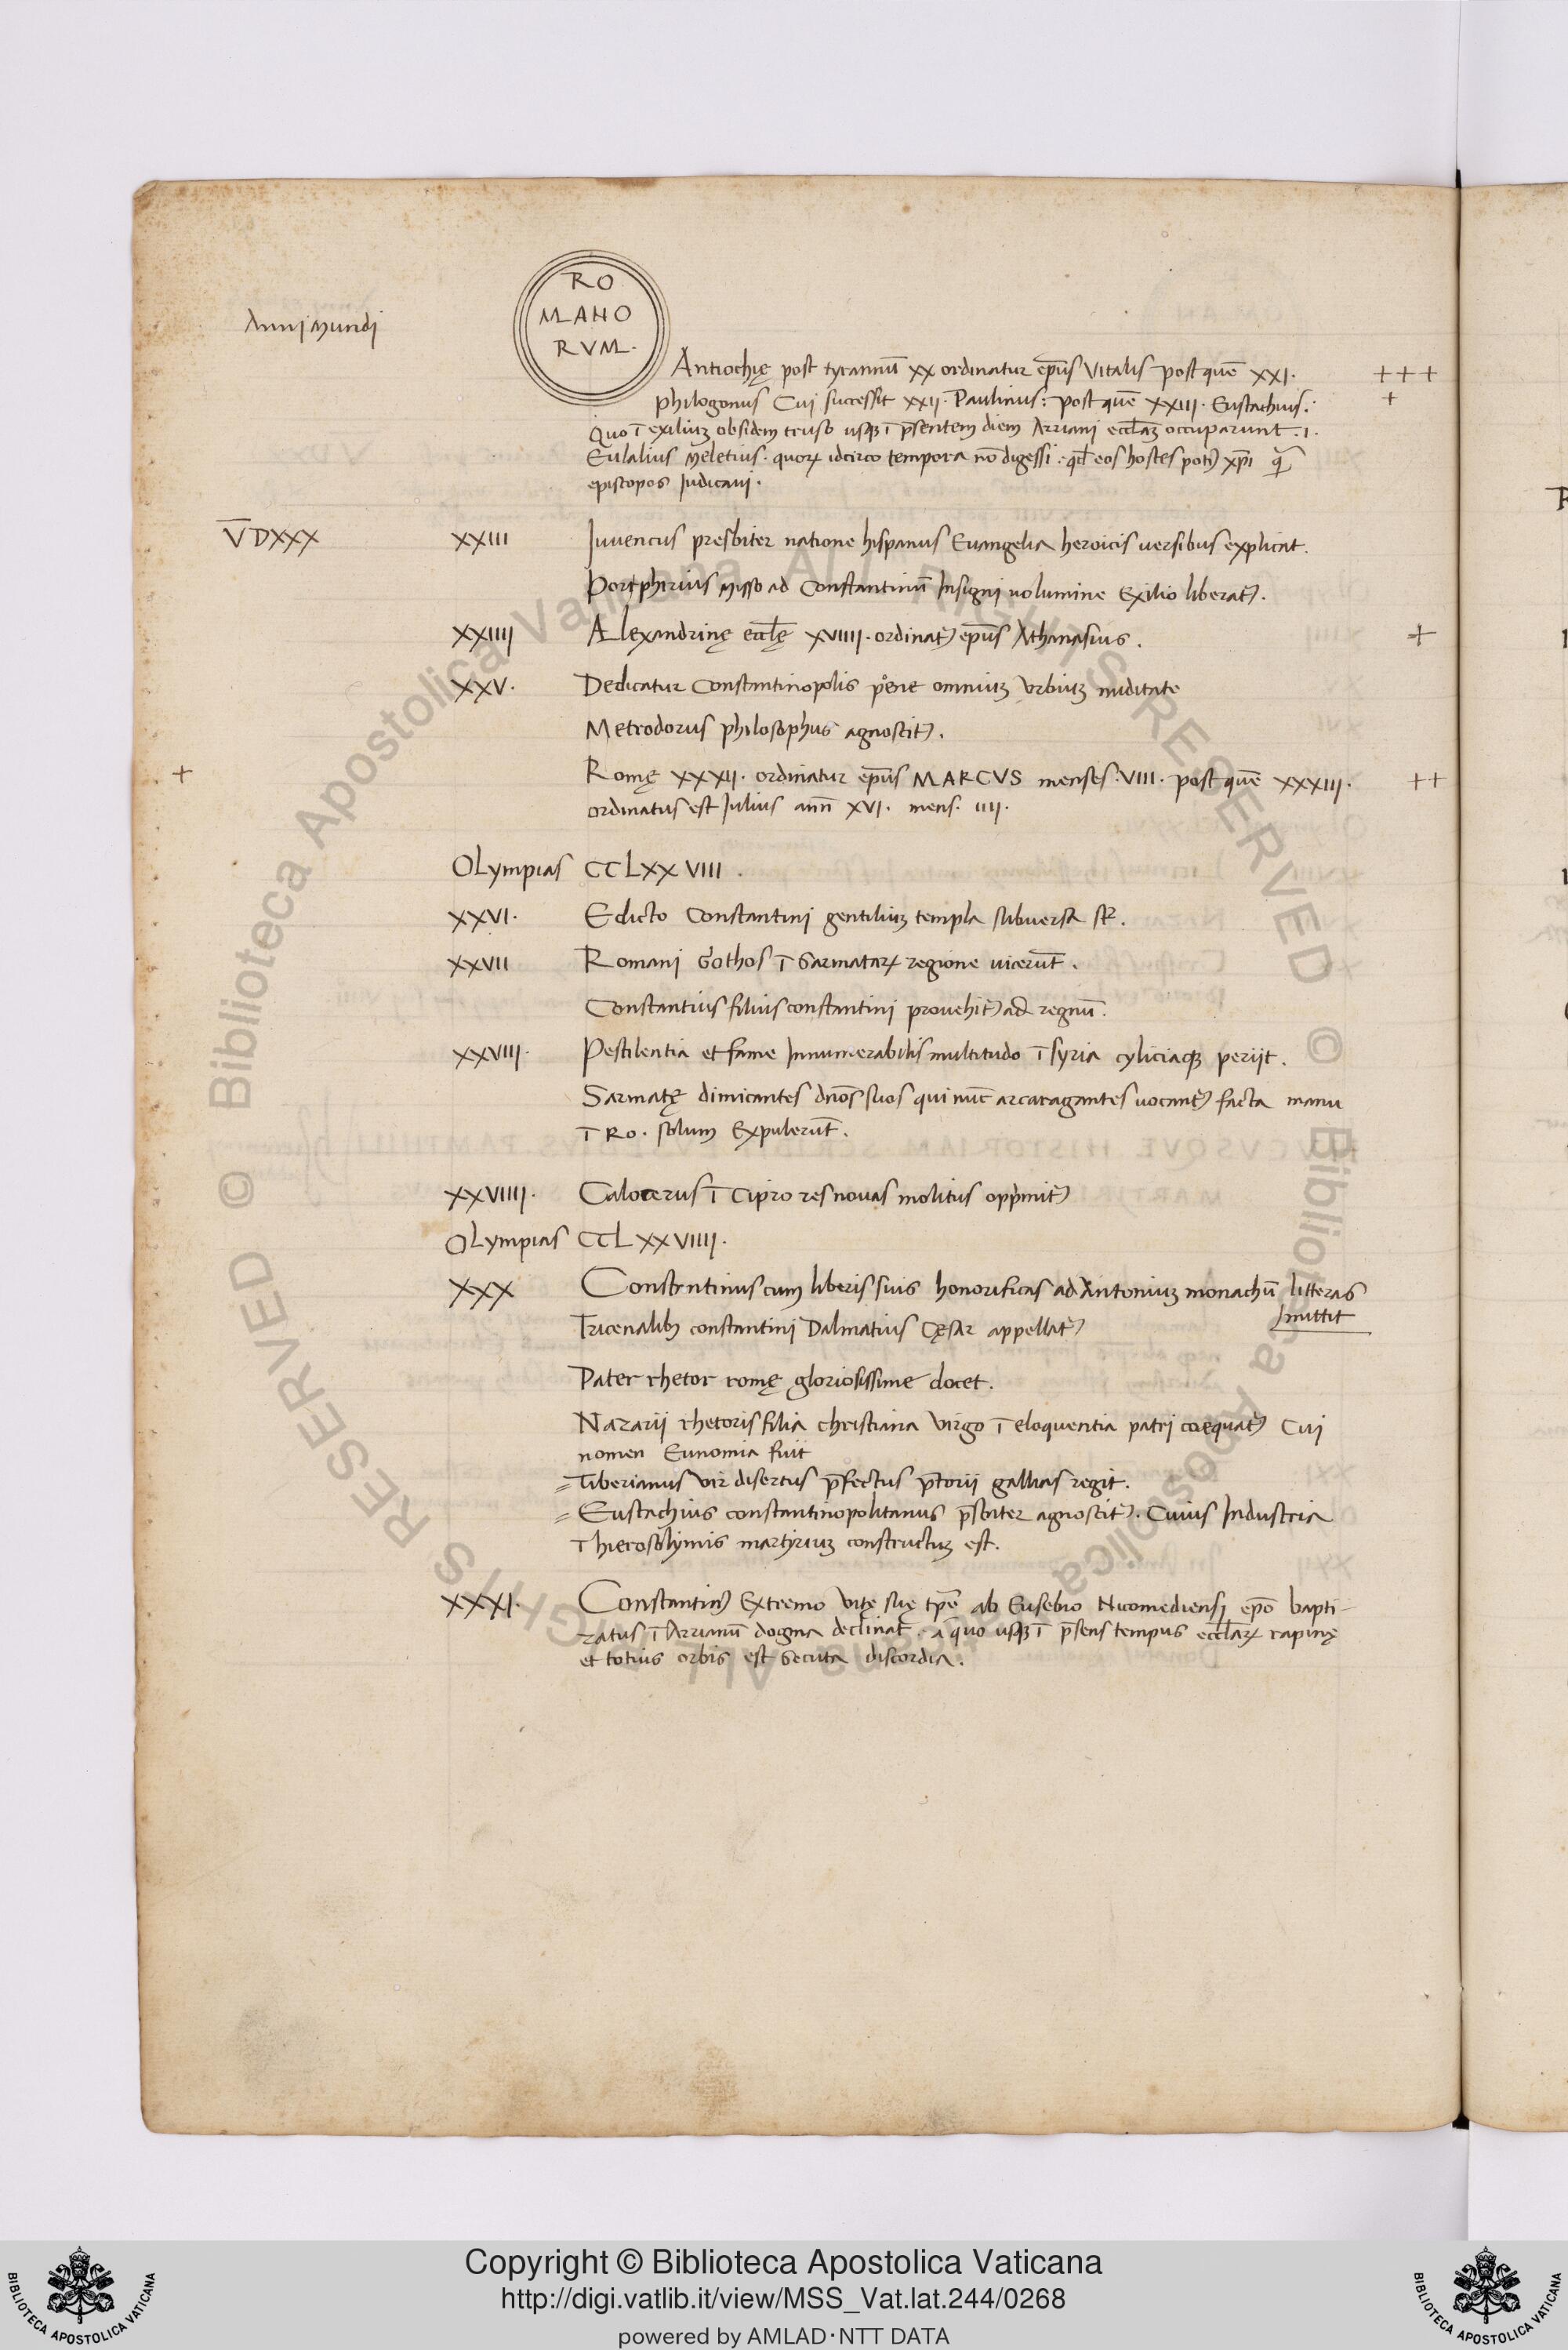 RO
MANO
RVM.
Anni Mundi
Antiochię post tyrannū XX ordinatur ep̄us Vitalis post quē XXI.
philogonus Cui successit XXII. Paulinus: post quē XXIII. Eustachius.
Quo ī exilium ob fidem truso usq; ī p̄sentem diem Arriani eccl̄am occuparunt .i.
Eulalius Meletius. quorꝝ idcirco tempora nō digessi. qđ eos hostes poti9 xp̄i q̄
episcopos Judicavi.
V̄DXXX XXIII Juvencus presbiter natione hispanus Evangelia heroicis versibus explicat.
Porphirius Misso ad Constantinū Insigni volumine Exilio liberat̉.
XXIIII Alexandrinę eccl̄ę XVIIII. ordinat̉ ep̄us Athanasius.
XXV. Dedicatur Constantinopolis pene omnium Urbium nuditate
Metrodorus philosophus agnoscit̉.
Romę XXXII. ordinatur ep̄us MARCVS menses. VIII. post quē XXXIII.
ordinatus est Julius ann̄ XVI. mens. IIII.
OLympias CCLXXVIII.
XXVI. Edicto Constantini gentilium templa subversa st̄.
XXVII Romani Gothos ī Sarmatarꝝ regione vicerūt.
Constantius filius constantini provehit̉ ad regnū.
XXVIII. Pestilentia et fame Innumerabilis multitudo ī syria cyliciaq; periit.
Sarmatę dimicantes dn̄os suos qui nūc arcaragantes vocant̉ facta manu
ī Ro. solum Expulerūt.
XXVIIII. Calocerus ī Cipro res novas molitus opp̄mit̉
OLympias CCLXXVIIII.
XXX Constentinus cum liberis suis honorificas ad Antonium monachū litteras
mittit
Tricenalib; constantini Dalmatius Cęsar appellat̉
Pater rhetor romę gloriosissime docet.
Nazarii rhetoris filia christiana virgo ī eloquentia patri coequat̉ Cui
nomen Eunomia fuit
Tiberianus vir disertus p̄fectus p̄torii gallias regit.
Eustachius constantinopolitanus p̄sbiter agnoscit̉. Cuius Industria
ī hierosolymis martyrium constructum est.
XXXI. Constantin9 Extremo Vitę suę tp̄e ab Eusebio Nicomediensi ep̄o bapti-
zatus ī Arrianū dogma declinat. a quo usq; ī p̄sens tempus eccl̄arꝝ rapinę
et totius orbis est secuta discordia.
Copyright © Biblioteca Apostolica Vaticana
http://digi.vatlib.it/view/MSS_Vat.lat.244/0268
powered by AMLAD·NTT DATA